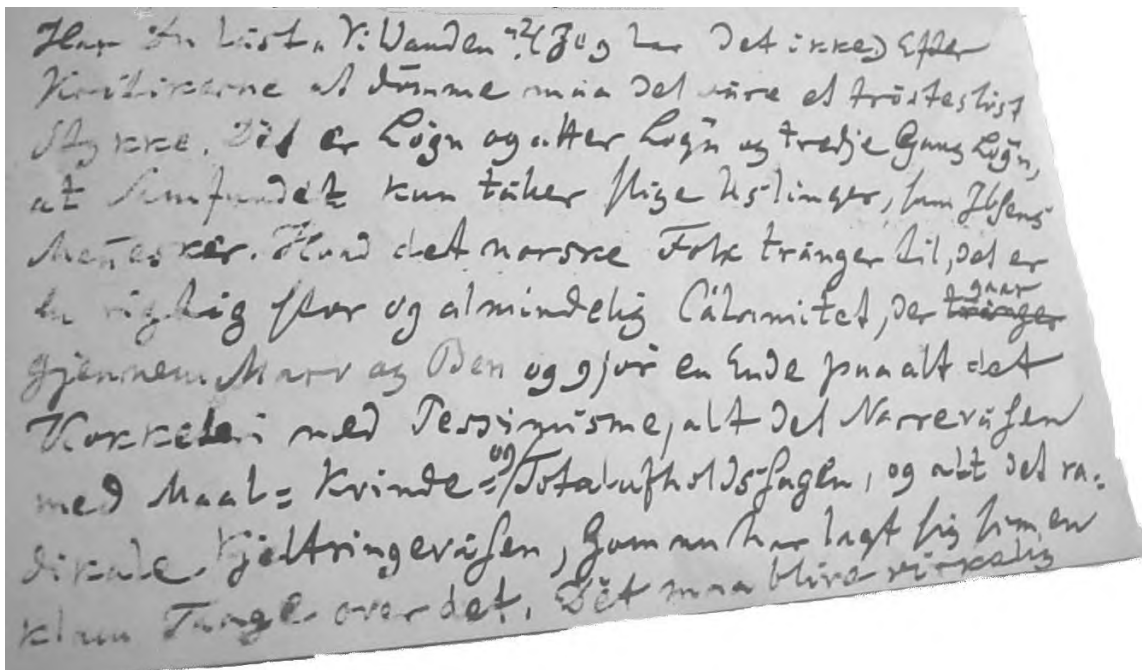 Har Du læst „Vildanden“? (Jeg har det ikke.) Efter
Kritikerne at dömme maa det være et tröstesløst
Stykke. Det er Løgn og atter Løgn og tredje Gang Løgn,
at Samfundet kun täller slige Uslinger, som Ibsens
Menesker. Hvad det norske Folk tränger til, det er
en rigtig stor og almindelig Calamitet, der gaar
gjennem Marv og Ben og gjör en Ende paa alt det
Kokkeleri med Pessimisme, alt det Narreväsen
med Maal- Kvinde- og Totalafholdssagen, og alt det ra-
dikale Kjeltringeväsen, som nu har lagt sig som en
klam Taage over det. Det maa blive virkelig